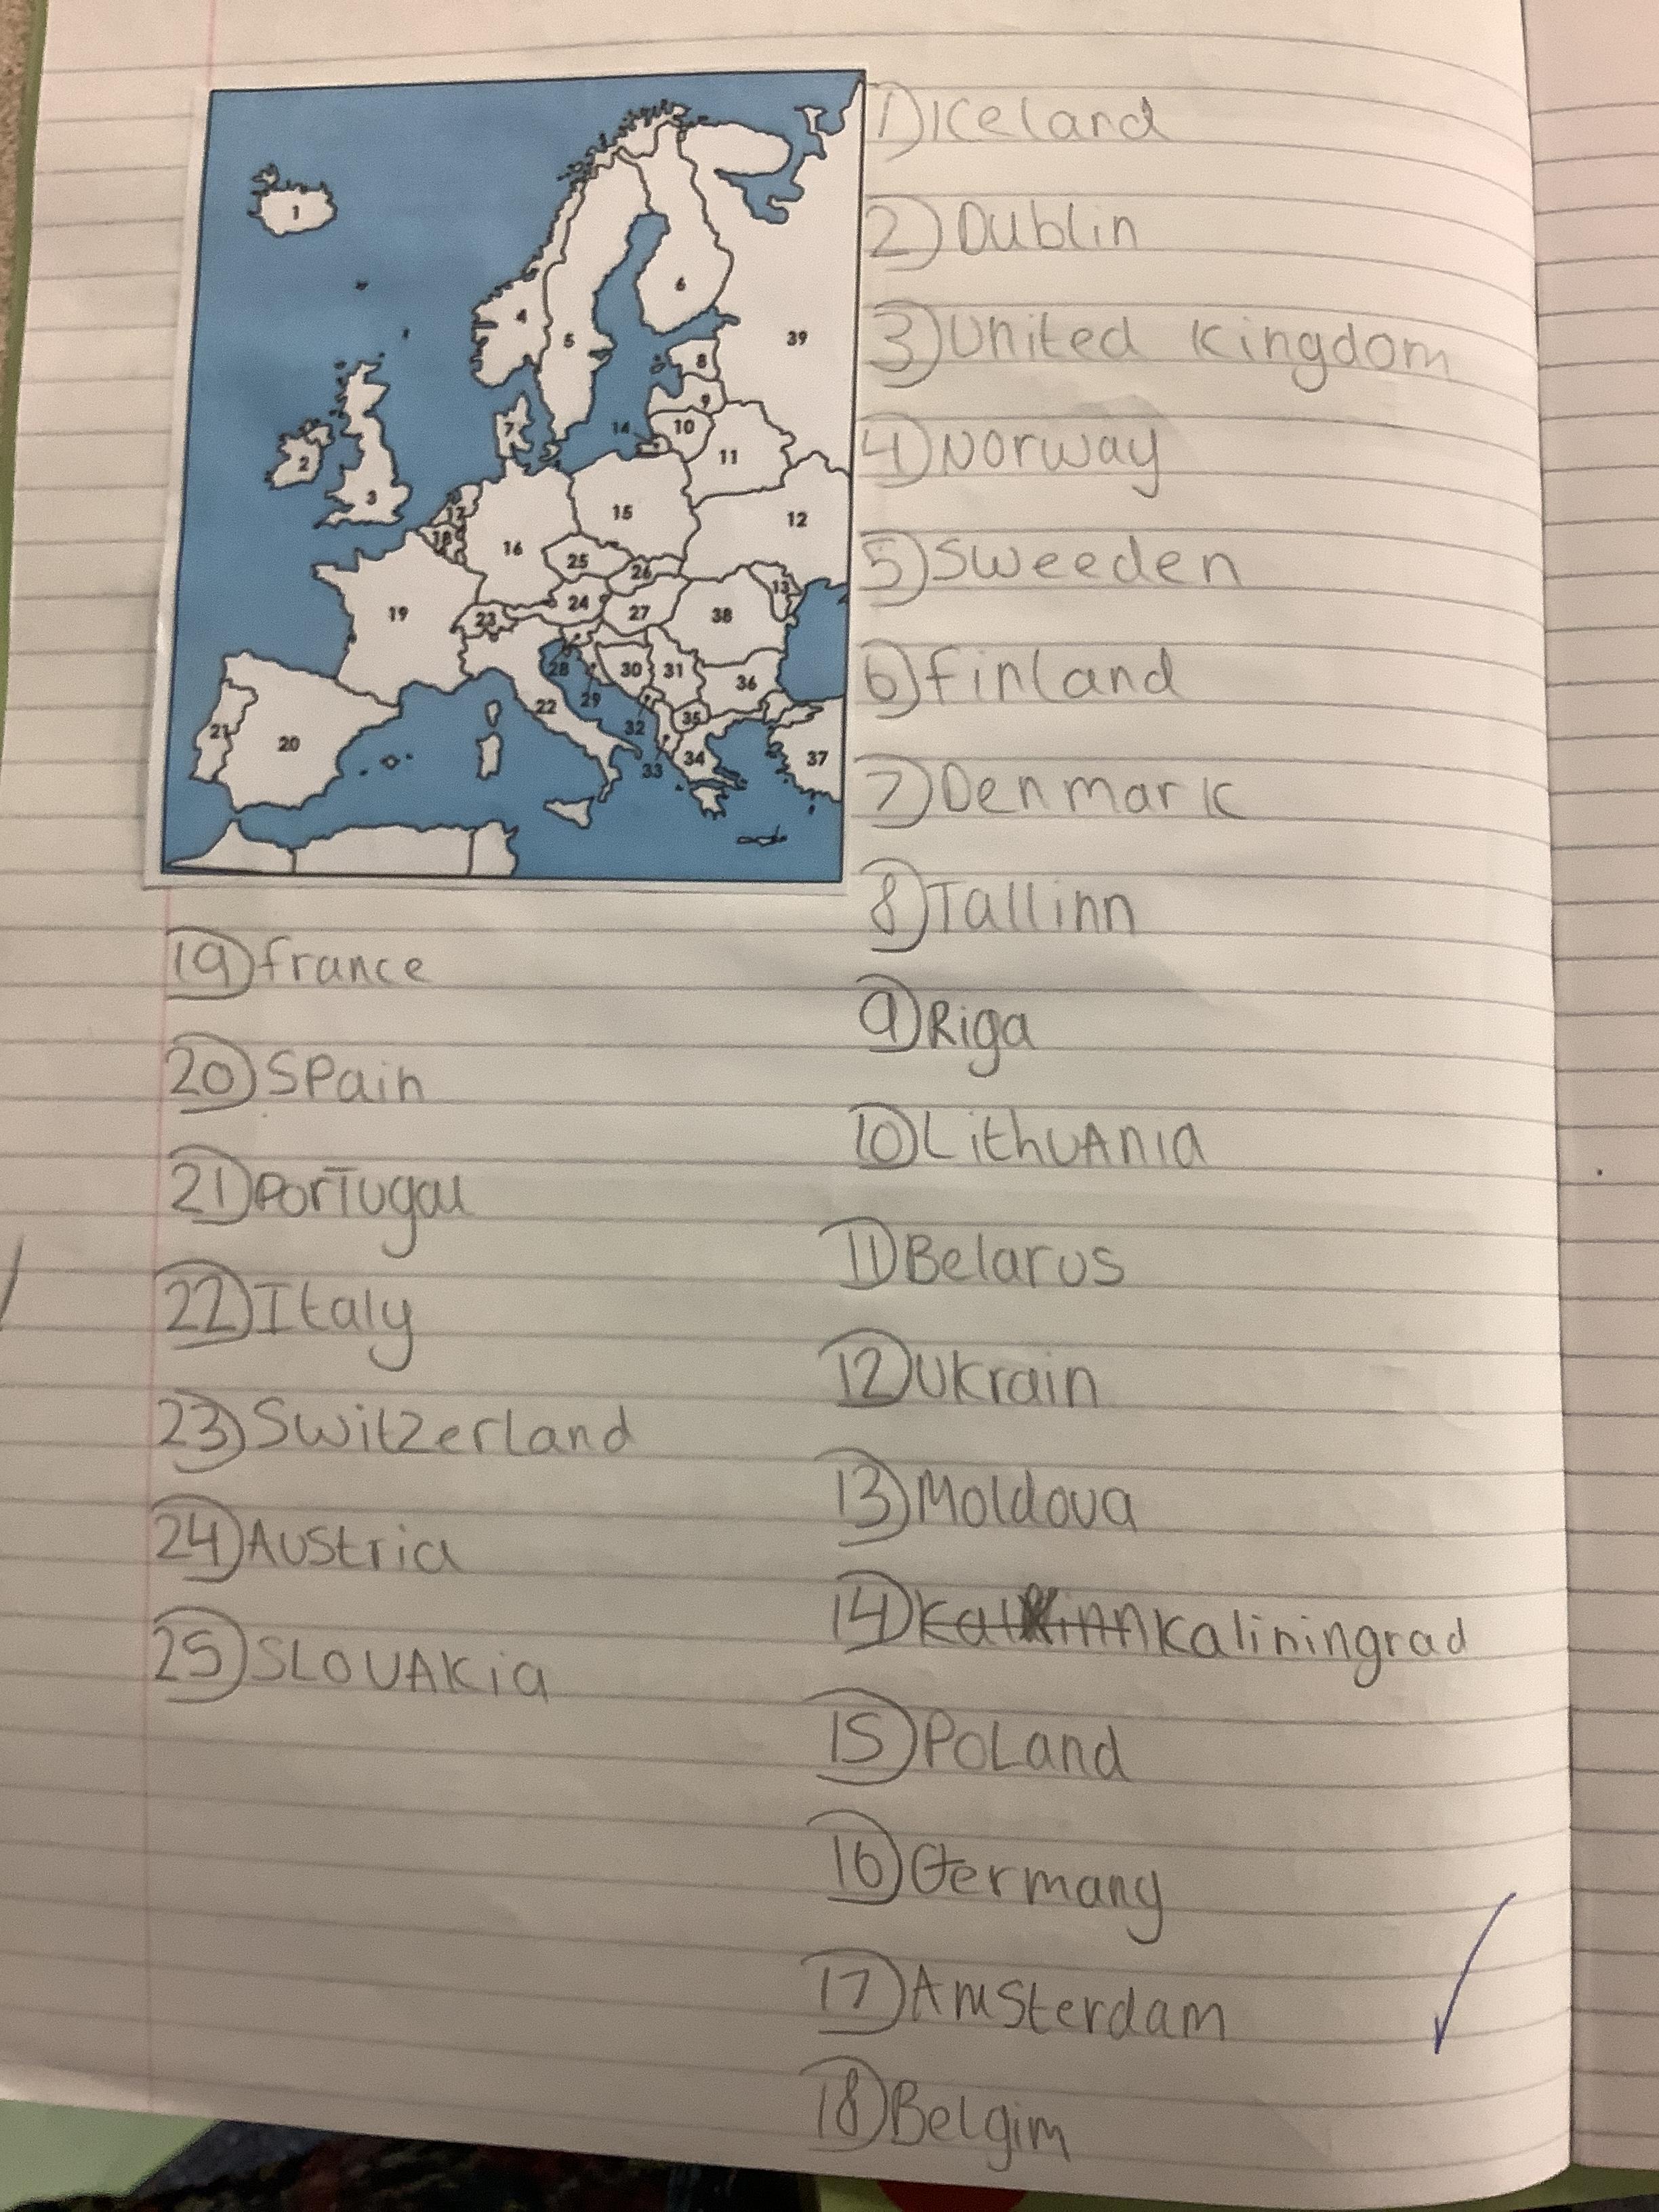 1
4
5
6
39
8
9
7
14
10
11
2
3
17
15
12
18
16
25
26
13
19
23
24
27
38
28
30
31
36
21
20
22
29
32
35
33
34
37
1) Iceland
2) Dublin
3) United Kingdom
4) Norway
5) Sweeden
6) Finland
7) Denmark
8) Tallinn
9) Riga
10) LithuAnia
11) Belarus
12) Ukrain
13) Moldova
14) Kaliningrad
15) PoLand
16) Germany
17) AmSterdam
18) Belgim
19) france
20) SPain
21) PorTugal
22) Italy
23) Switzerland
24) AuStria
25) SLOVAKia